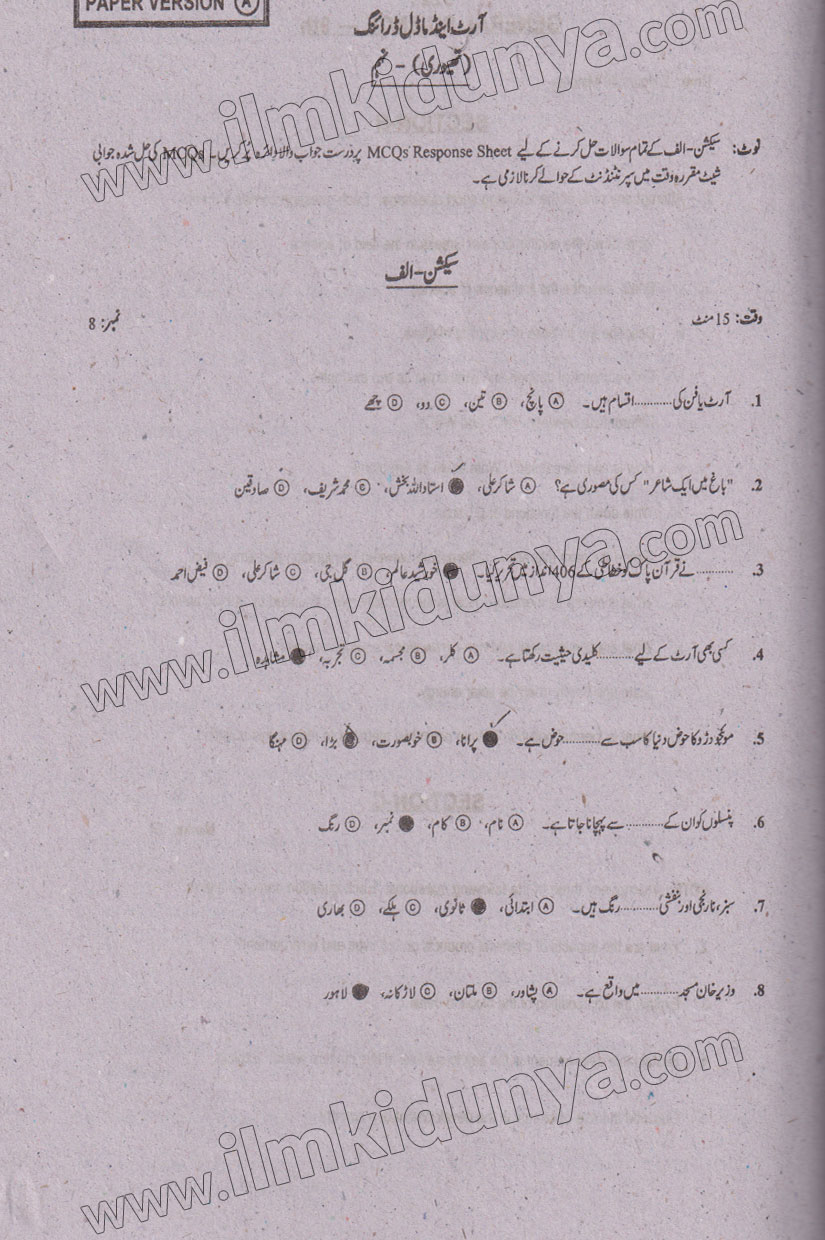 PAPER VERSION A
آرٹ اینڈ ماڈل ڈرائنگ
(تھیوری) - نہم
www.ilmkidunya.com
نوٹ: سیکشن-الف کے تمام سوالات حل کرنے کے لیے MCQs Response Sheet پر درست جواب والا دائرہ پُر کریں۔ MCQs کی حل شدہ جوابی
شیٹ مقررہ وقت میں سپرنٹنڈنٹ کے حوالے کرنا لازمی ہے۔
سیکشن-الف
وقت: 15 منٹ نمبر: 8
1. آرٹ یا فن کی ........... اقسام ہیں۔ A پانچ، B تین، C دو، D چھے
2. "باغ میں ایک شاعر" کس کی مصوری ہے؟ A شاکر علی، استاد اللہ بخش، C محمد شریف، D صادقین
www.ilmkidunya.com
3. ........... نے قرآن پاک کو خطاطی کے 406 انداز میں تحریر کیا۔ خورشید عالم، B گل جی، C شاکر علی، D فیض احمد
4. کسی بھی آرٹ کے لیے ........... کلیدی حیثیت رکھتا ہے۔ A کلر، B مجسمہ، C تجربہ، مشاہدہ
5. موئنجودڑو کا حوض دنیا کا سب سے ........... حوض ہے۔ پرانا، B خوبصورت، بڑا، D مہنگا
6. پنسلوں کو ان کے ........... سے پہچانا جاتا ہے۔ A نام، B کام، نمبر، D رنگ
7. سبز، نارنجی اور بنفشی ........... رنگ ہیں۔ A ابتدائی، ثانوی، C ہلکے، D بھاری
8. وزیر خان مسجد ........... میں واقع ہے۔ A پشاور، B ملتان، C لاڑکانہ، لاہور
www.ilmkidunya.com